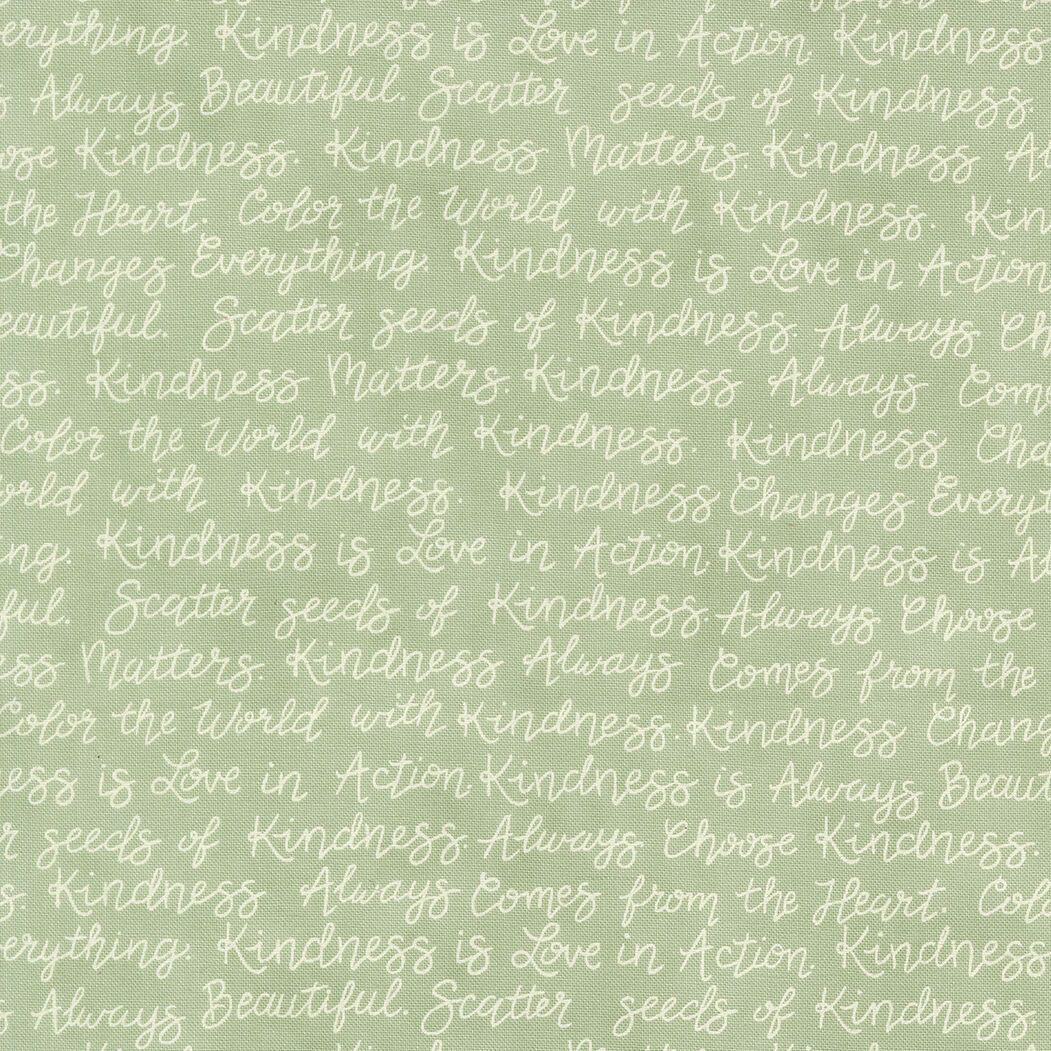 erything. Kindness is Love in Action. Kindness
Always Beautiful. Scatter seeds of Kindness.
ose Kindness. Kindness Matters. Kindness Al
the Heart. Color the World with Kindness. Kin
Changes Everything. Kindness is Love in Action
eautiful. Scatter seeds of Kindness. Always Ch
ss. Kindness Matters. Kindness Always Come
Color the World with Kindness. Kindness Cha
orld with Kindness. Kindness Changes Everyt
ng. Kindness is Love in Action. Kindness is Al
ful. Scatter seeds of Kindness. Always Choose
ess Matters. Kindness Always Comes from the
Color the World with Kindness. Kindness Chang
ess is Love in Action. Kindness is Always Beaut
r seeds of Kindness. Always Choose Kindness.
s. Kindness Always Comes from the Heart. Colo
erything. Kindness is Love in Action. Kindness
s Always Beautiful. Scatter seeds of Kindness.